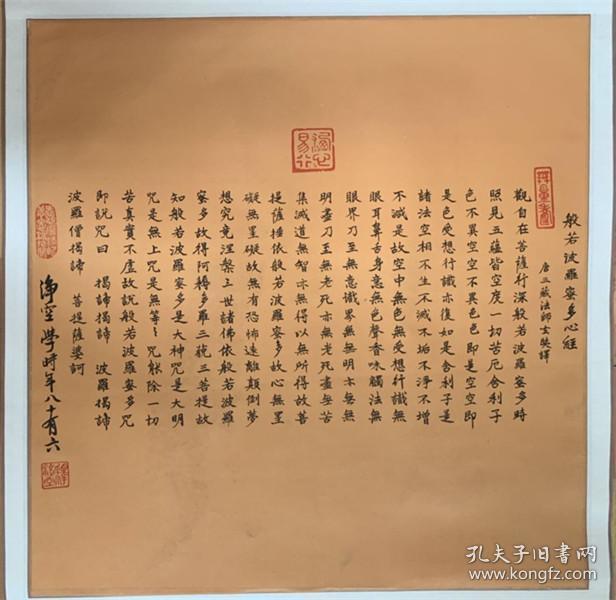 般若波羅蜜多心經
唐三藏法師玄奘譯
觀自在菩薩行深般若波羅蜜多時
照見五蘊皆空度一切苦厄舍利子
色不異空空不異色色即是空空即
是色受想行識亦復如是舍利子是
諸法空相不生不滅不垢不淨不增
不滅是故空中無色無受想行識無
眼耳鼻舌身意無色聲香味觸法無
眼界乃至無意識界無無明亦無無
明盡乃至無老死亦無老死盡無苦
集滅道無智亦無得以無所得故菩
提薩埵依般若波羅蜜多故心無罣
礙無罣礙故無有恐怖遠離顛倒夢
想究竟涅槃三世諸佛依般若波羅
蜜多故得阿耨多羅三藐三菩提故
知般若波羅蜜多是大神咒是大明
咒是無上咒是無等等咒能除一切
苦真實不虛故說般若波羅蜜多咒
即說咒曰 揭諦揭諦 波羅揭諦
波羅僧揭諦 菩提薩婆訶
淨空學時年八十有六
孔夫子旧书网
www.kongfz.com